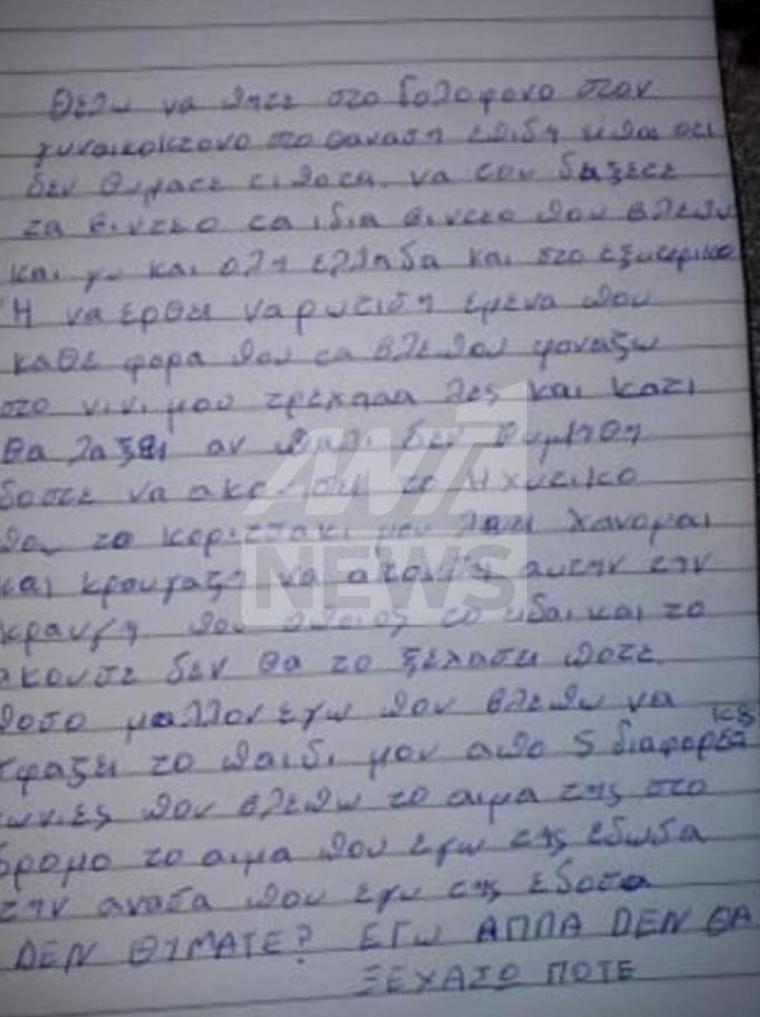 Θελω να πητε στο δολοφονο στον
γυναικοκτονο στο θαναση επιδη ειπαι οτι
δεν θυματε τιποτα. να του δειξετε
τα βιντεο τα ιδια βιντεο που βλεπω
και γω και ολη ελλαδα και στο εξωτερικο
Η να ερθει να ρωτιση εμενα που
καθε φορα που τα βλεπου φοναζω
στο νινι μου τρεχα λες και κατι
θα λαξει αν παλι δεν θυμηθη
δοστε να ακουση το Ηχυτικο
που το κοριτσακι μου λεει χανομαι
και κραυγαζη να ακουση αυτην την
κραυγη που οποιος το ειδαι και το
ακουσε δεν θα το ξεχασει ποτε.
ποσο μαλλον εγω που βλεπω να
σφαζει το παιδι μου απο 5 διαφορετ
κες
ωνιες που βλεπω το αιμα της στο
δρομο το αιμα που εγω της εδωσα
την ανασα που εγω της εδοσα
ΔΕΝ ΘΥΜΑΤΕ? ΕΓΩ ΑΠΠΑ DEN ΘΑ
ΞΕΧΑΣΩ ΠΟΤΕ
ANT1
NEWS